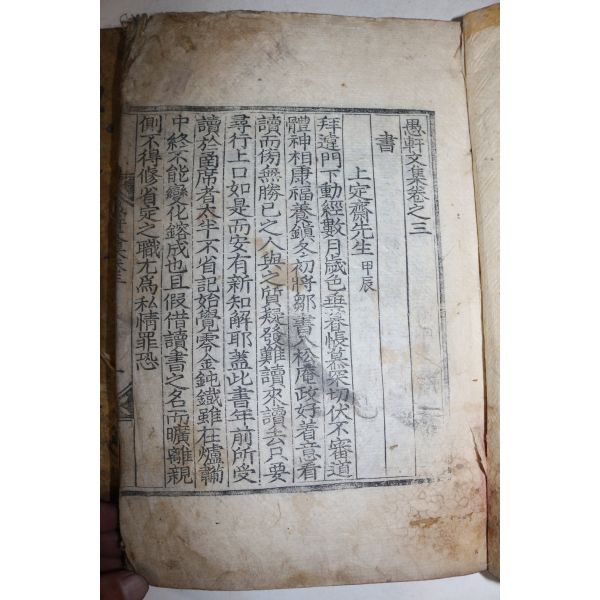 愚軒文集卷之三
書
上定齋先生 甲辰
拜違門下動經數月歲色垂暮悵慕深切伏不審道
體神相康福養鎭冬初將鄒書入松庵政好着意看
讀而傍無勝已之人與之質疑發難讀來讀去只要
尋行上口如是而安有新知解耶蓋此書年前所受
讀於函席者太半不省記始覺零金鈍鐵雖在爐韛
中終不能變化鎔成也且假借讀書之名而曠離親
側不得修省定之職尤爲私情罪恐